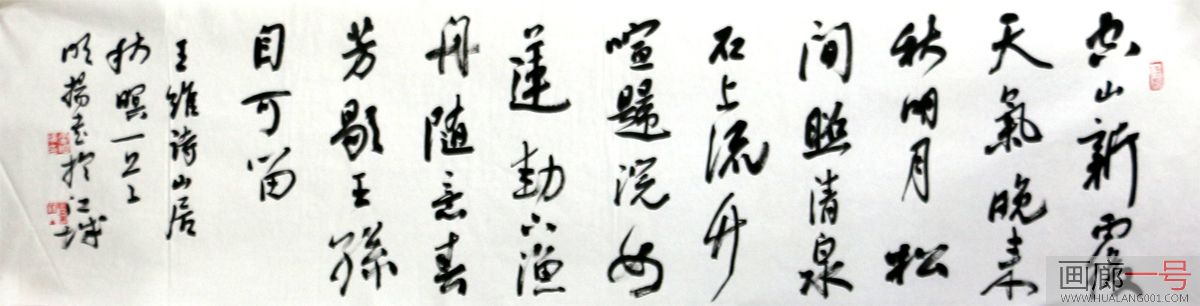 空山新雨後
天氣晚来
秋明月松
间照清泉
石上流竹
喧歸浣女
莲動下渔
舟随意春
芳歇王孫
自可留
王維詩山居
秋暝一首
揚書於江城
画廊一号
WWW.HUALANG001.COM